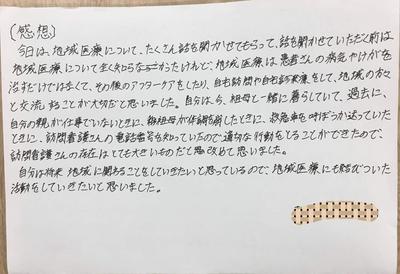 (感想)
今日は、地域医療について、たくさん話を聞かせてもらって、話を聞かせていただく前は
地域医療について全く知らなかったけれど、地域医療は患者さんの病気やけがを
治すだけではなくて、その後のアフターケアをしたり、自宅訪問や自宅診療をして、地域の方々
と交流することが大切だと思いました。自分は、今、祖母と一緒に暮らしていて、過去に、
自分の親が仕事でいないときに、祖母が体調を崩したときに、救急車を呼ぼうか迷っていた
ときに、訪問看護さんの電話番号を知っていたので適切な行動をとることができたので、
訪問看護さんの存在はとても大きいものだと改めて思いました。
自分は将来 地域に関わることをしていきたいと思っているので、地域医療にも結びついた
活動をしていきたいと思いました。